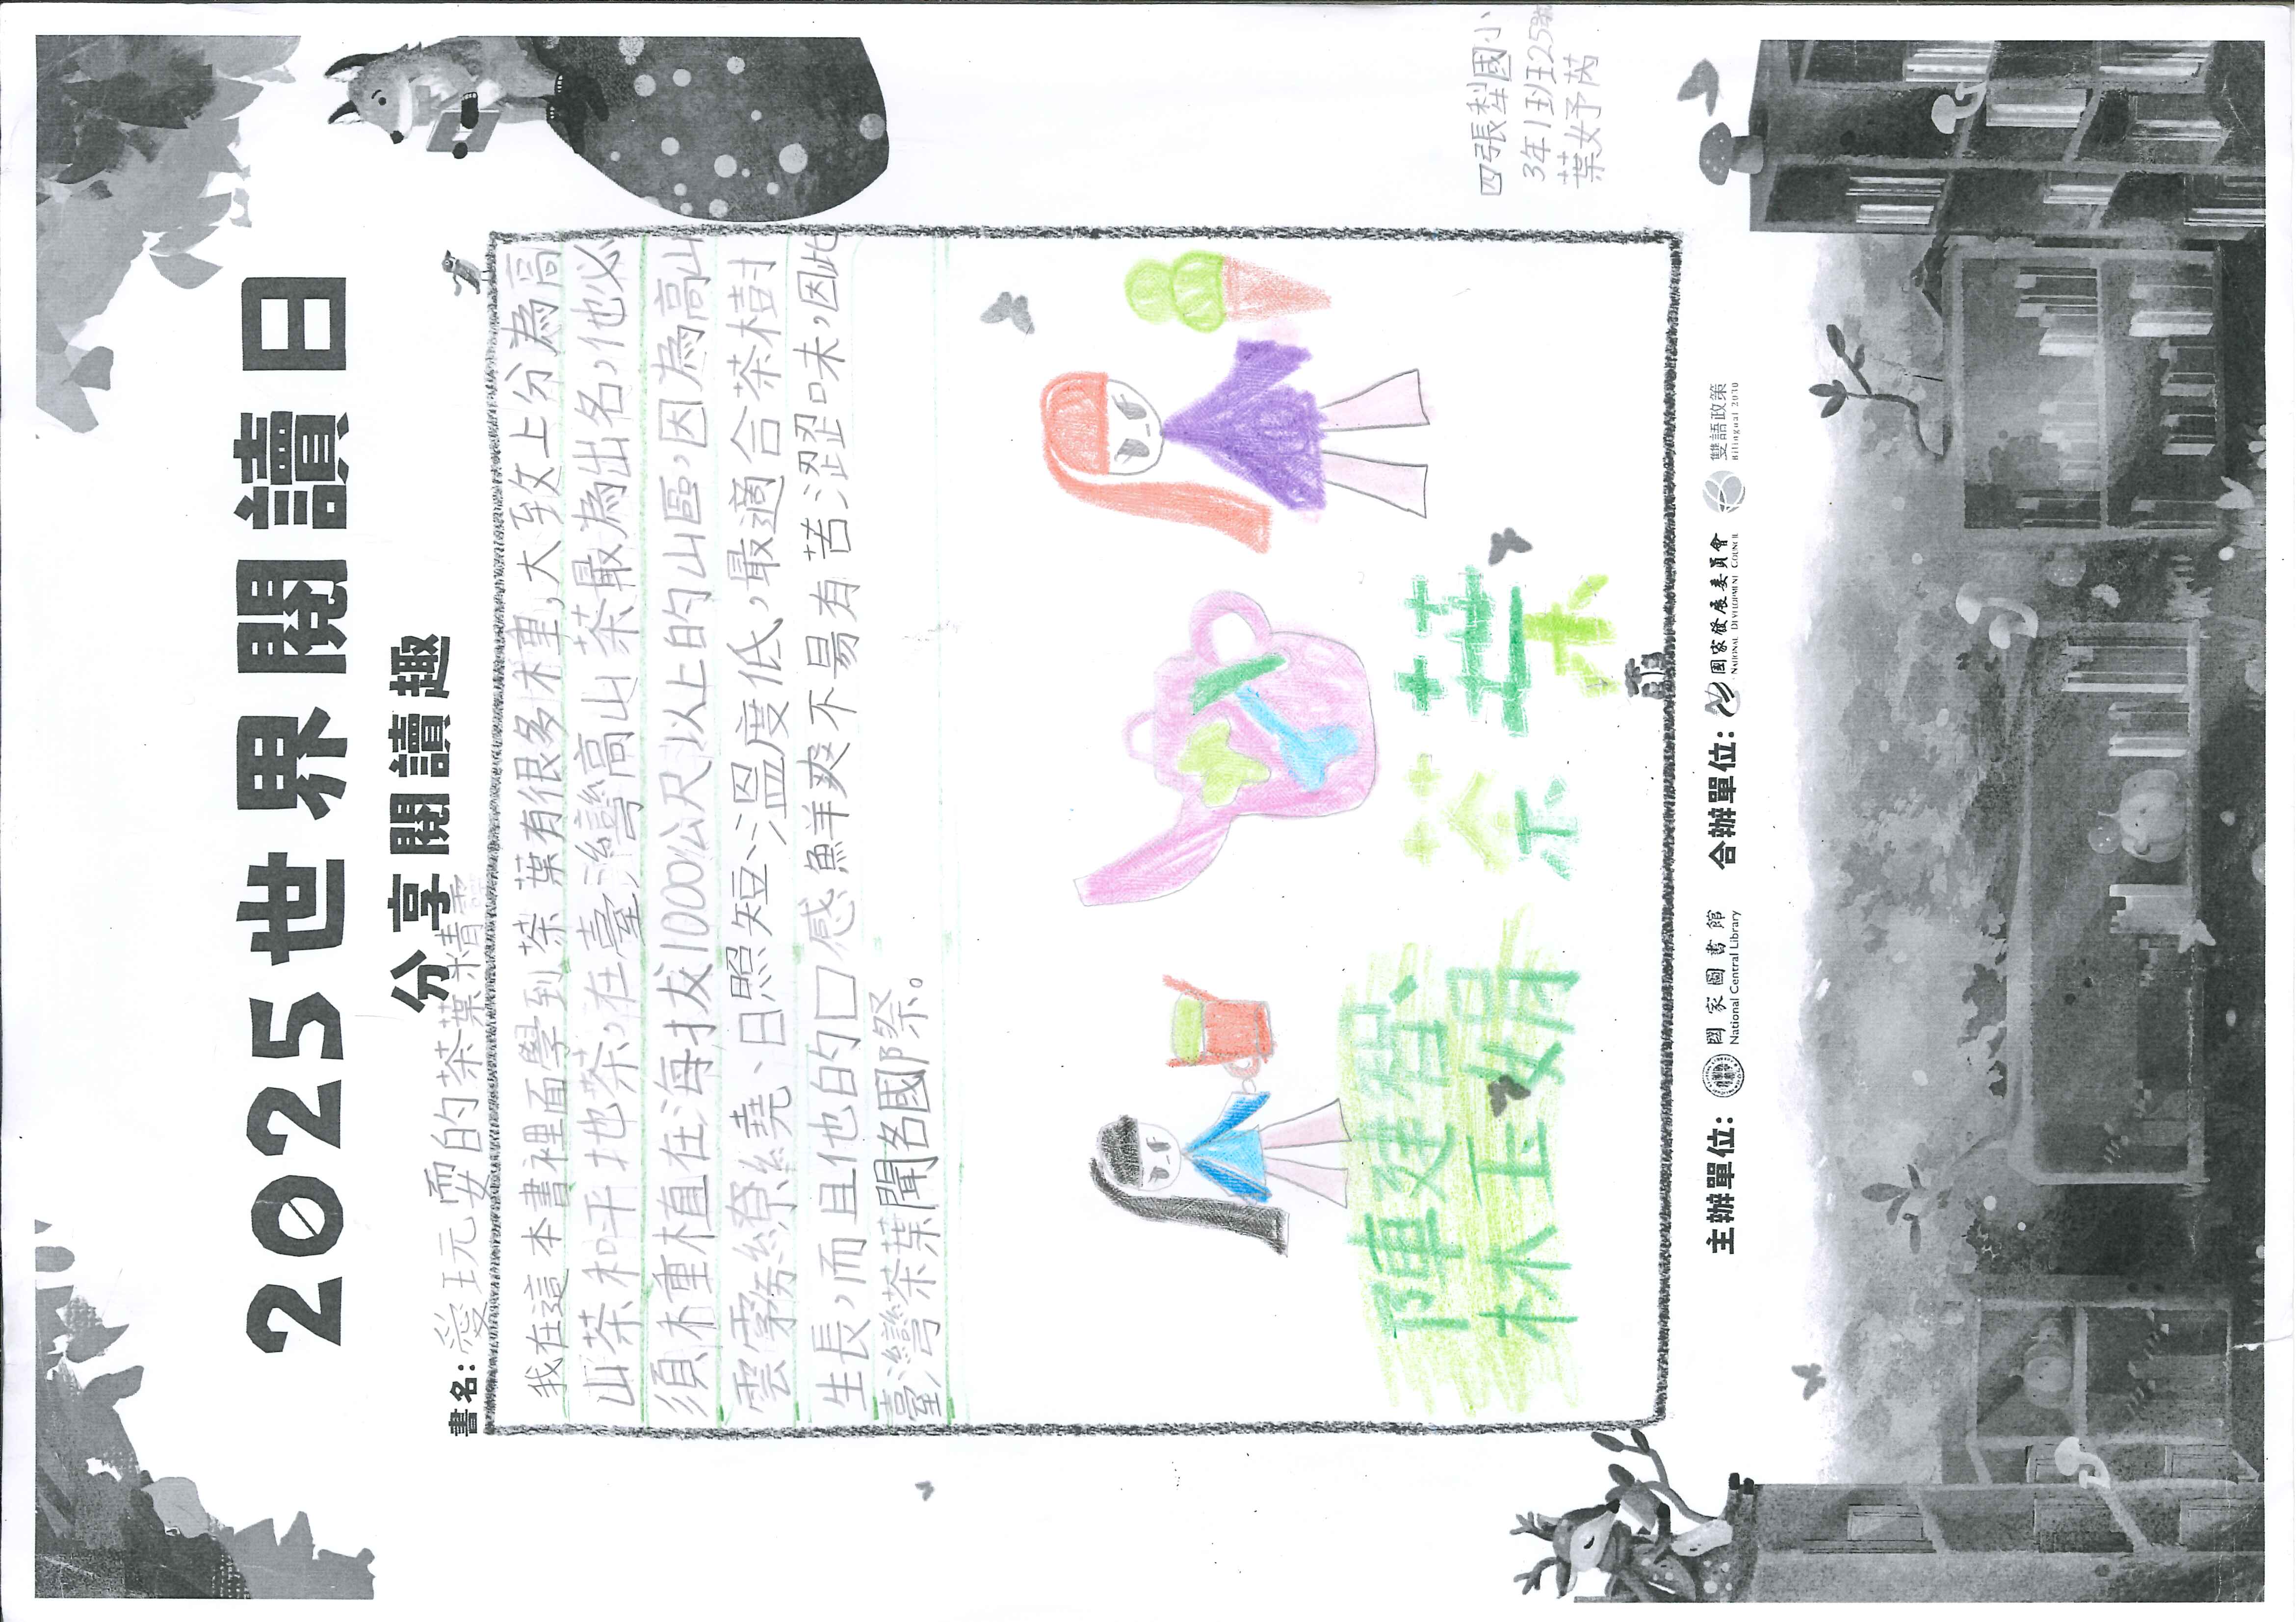 四張犁國小
3年1班25號
葉妤芮
2025世界閱讀日
分享閱讀趣
書名：愛玩耍的茶葉精靈
我在這本書裡面學到茶葉有很多種,大致上分為高
山茶和平地茶,在臺灣高山茶最為出名,他必
須種植在海拔1000公尺以上的山區,因為高山
雲霧繚繞、日照短、溫度低,最適合茶樹
生長,而且他的口感鮮爽不易有苦澀味,因此
臺灣茶葉聞名國際。
陳建智、 茶葉
林玉娟
主辦單位: 國家圖書館 National Central Library 合辦單位: 國家發展委員會 National Development Council 雙語政策 Bilingual 2030